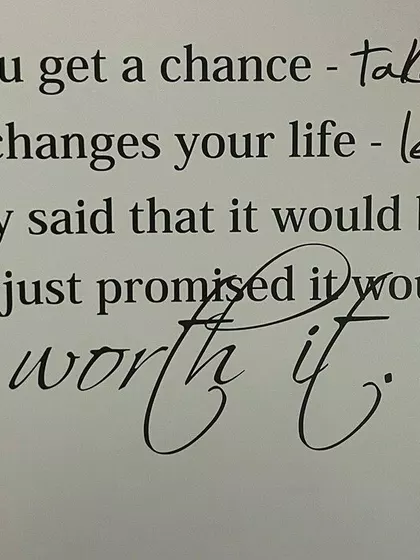 u get a chance - tak
changes your life - le
y said that it would b
just promised it wou
worth it.